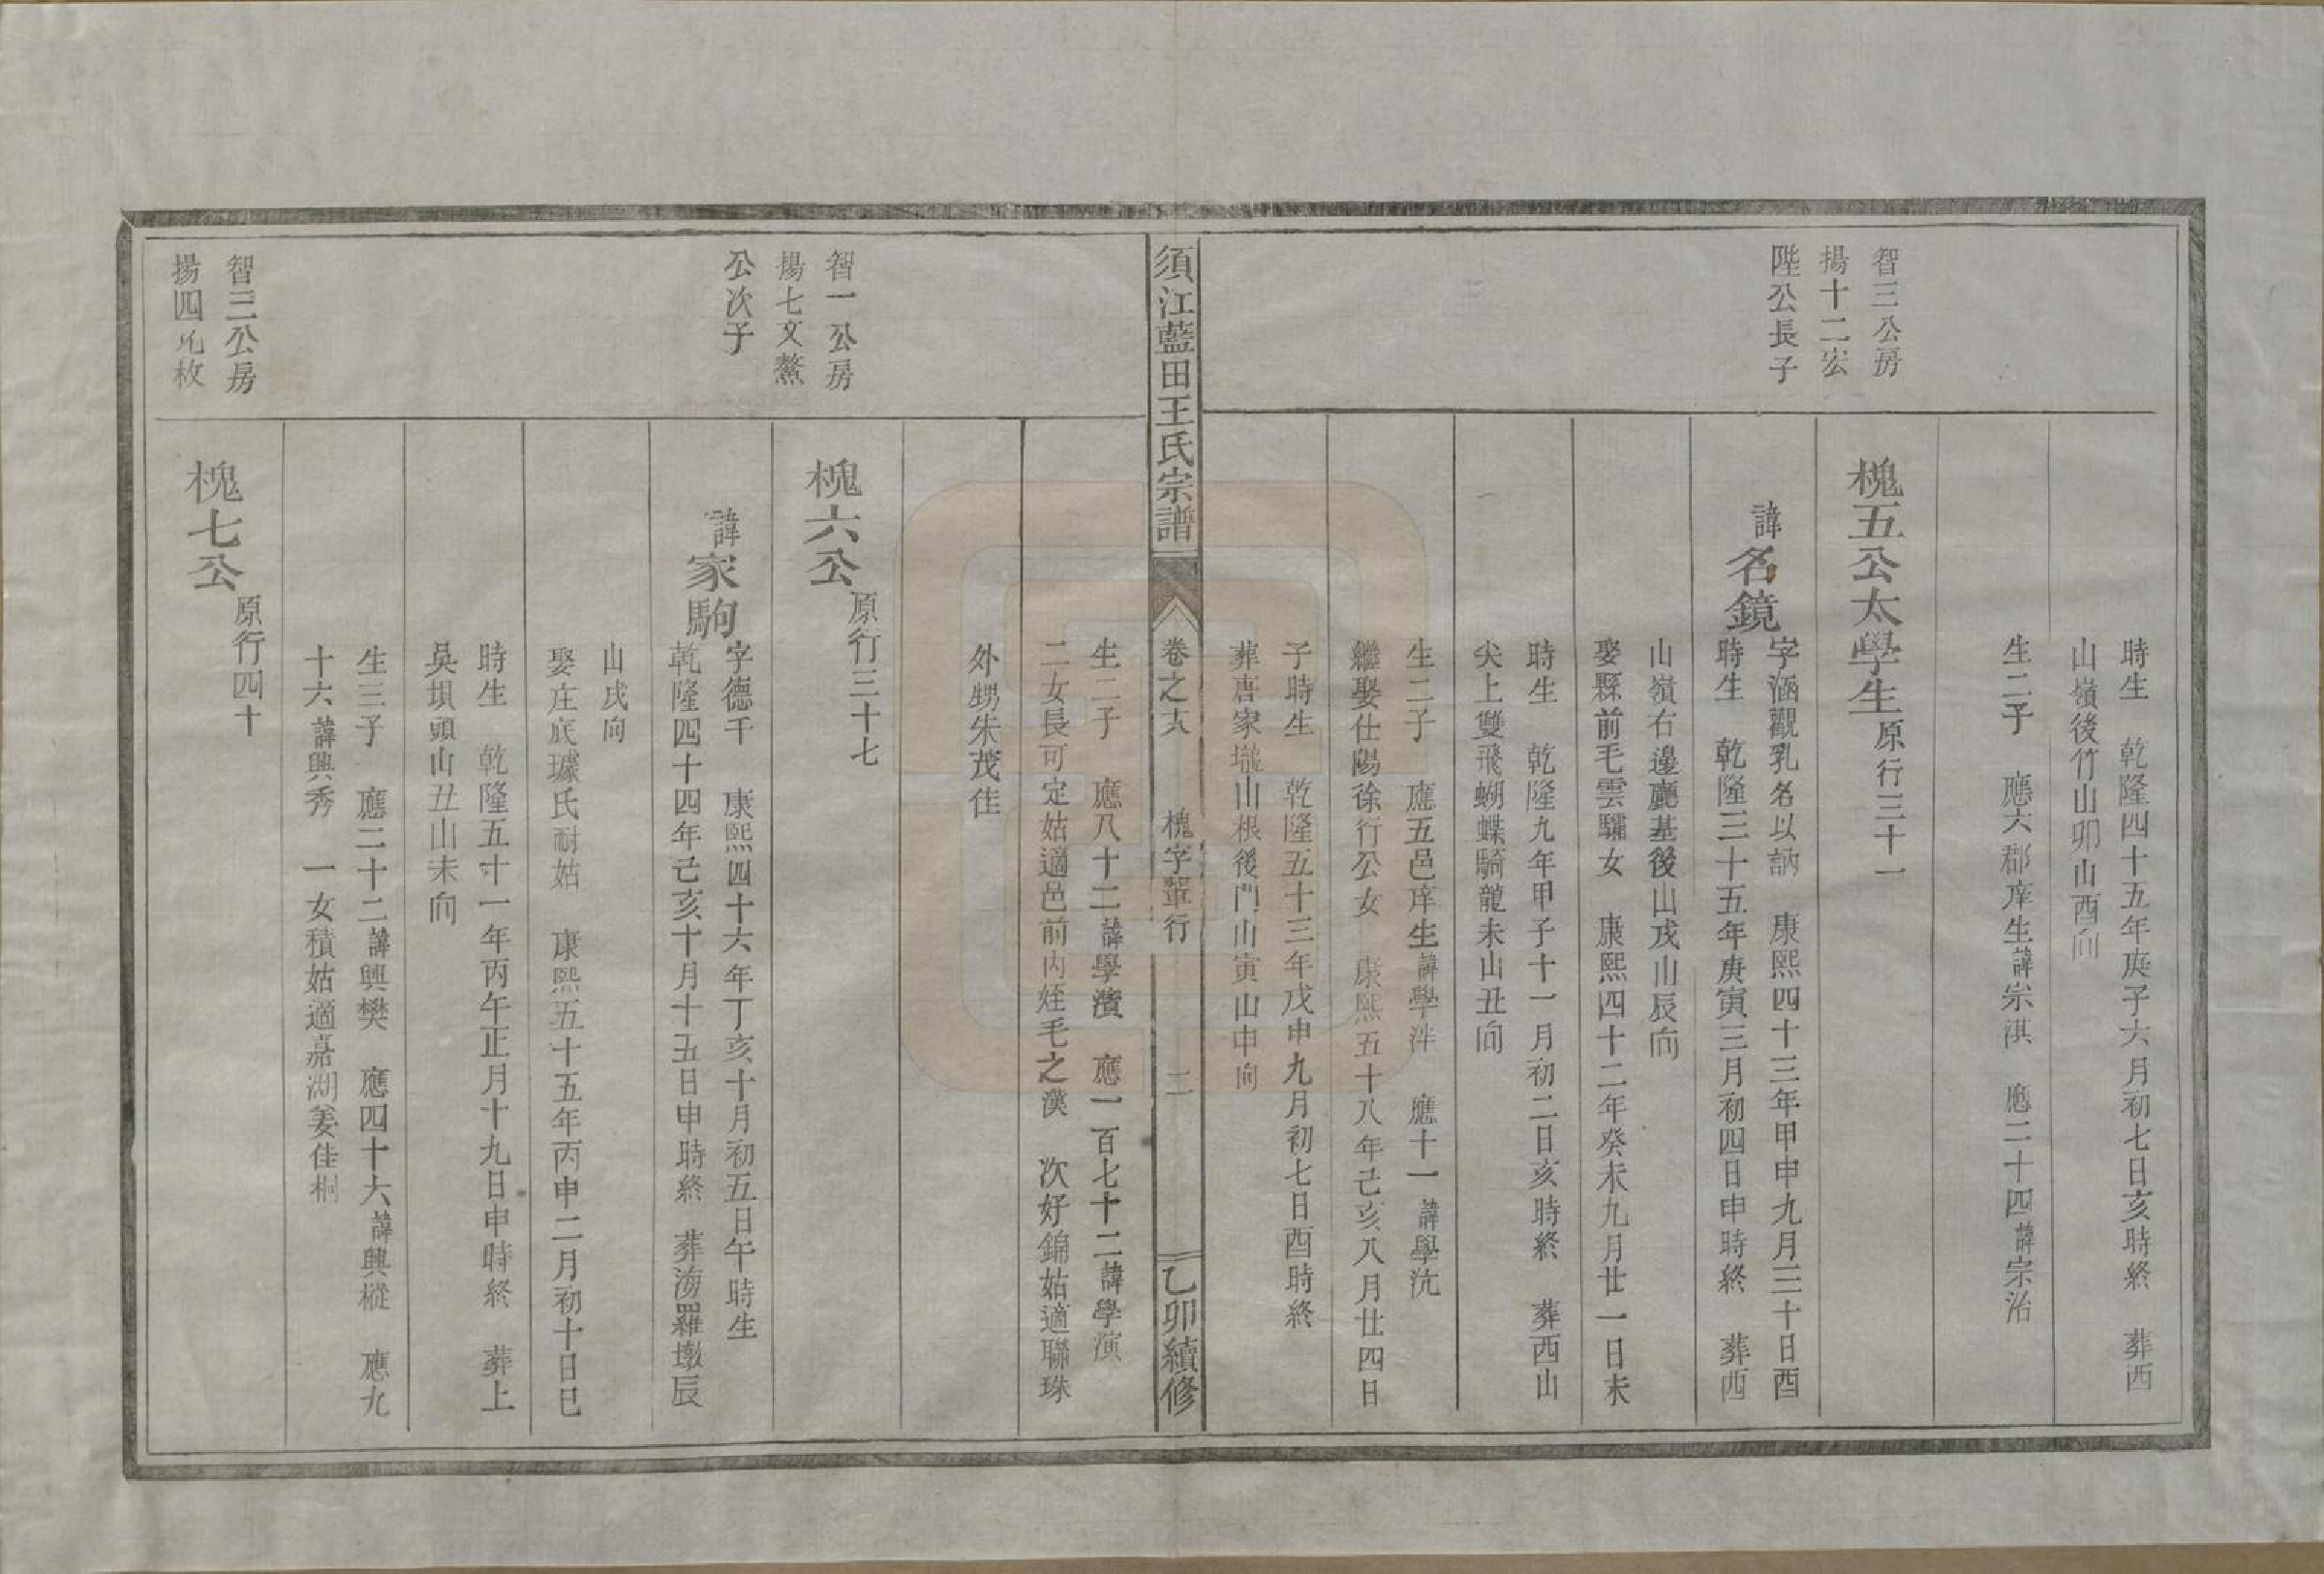 時生　乾隆四十五年庚子六月初七日亥時終　葬西
山嶺後竹山卯山酉向
生二子　應六郡庠生諱宗淇　應二十四諱宗治
智三公房
揚十二宏
陛公長子
槐五公太學生原行三十一
諱名鏡
字涵觀乳名以訥　康熙四十三年甲申九月三十日酉
時生　乾隆三十五年庚寅三月初四日申時終　葬西
山嶺右邊廳基後山戌山辰向
娶縣前毛雲驌女　康熙四十二年癸未九月廿一日未
時生　乾隆九年甲子十一月初二日亥時終　葬西山
尖上雙飛蝴蝶騎龍未山丑向
生二子　應五邑庠生諱學泮　應十一諱學沆
繼娶仕陽徐行公女　康熙五十八年己亥八月廿四日
子時生　乾隆五十三年戊申九月初七日酉時終
葬唐家壠山根後門山寅山申向
須江藍田王氏宗譜
卷之六　槐字輩行　二
乙卯續修
生二子　應八十二諱學濱　應一百七十二諱學演
二女長可定姑適邑前內姪毛之漢　次好錦姑適聯珠
外甥朱茂佳
智一公房
揚七文鰲
公次子
槐六公原行三十七
諱家駒
字德千　康熙四十六年丁亥十月初五日午時生
乾隆四十四年己亥十月十五日申時終　葬湯羅墩辰
山戌向
娶庄底璩氏耐姑　康熙五十五年丙申二月初十日巳
時生　乾隆五十一年丙午正月十九日申時終　葬上
吳垻頭山丑山未向
生三子　應二十二諱興樊　應四十六諱興樅　應九
十六諱興秀　一女積姑適嘉湖姜佳桐
智三公房
揚四兆枚
槐七公原行四十